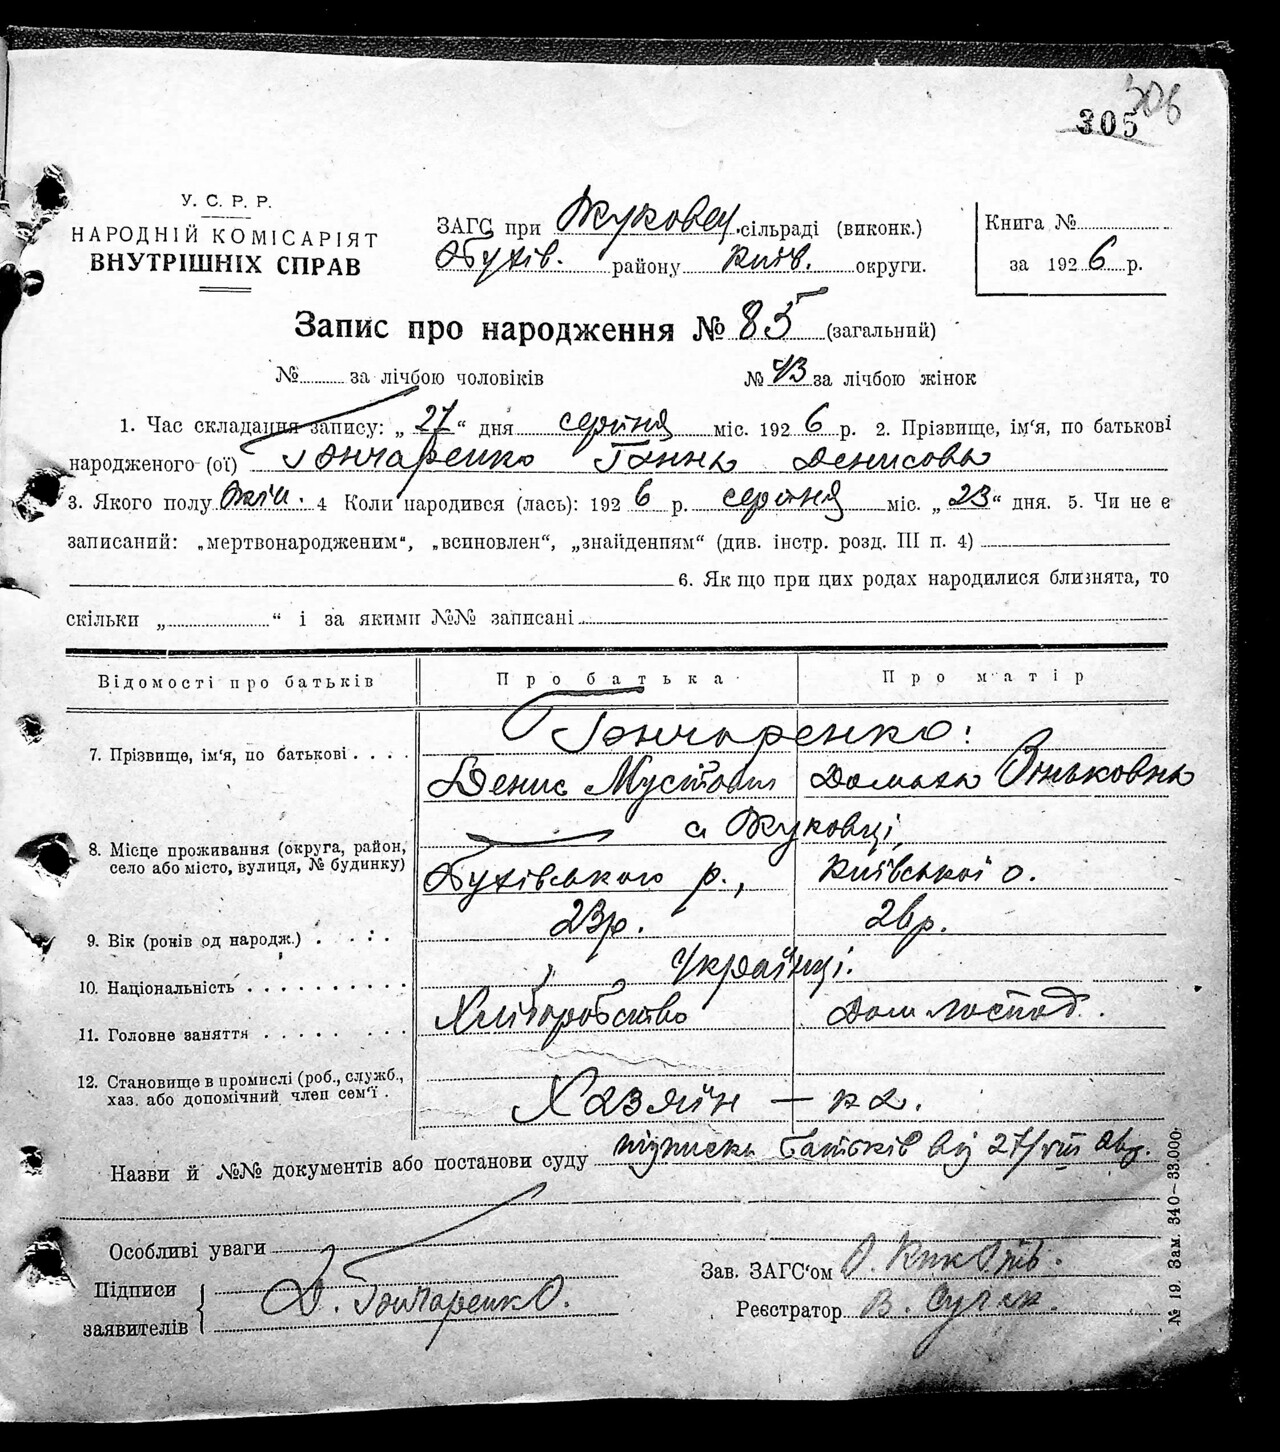 306
305
У. С. Р. Р.
НАРОДНІЙ КОМІСАРІЯТ
ВНУТРІШНІХ СПРАВ
ЗАГС при Жуковец. сільраді (виконк.)
Обухів. району Київ. округи.
Книга №
за 1926 р.
Запис про народження № 85 (загальний)
№ за лічбою чоловіків
№ 43 за лічбою жінок
1. Час складання запису: „27“ дня серпня міс. 1926 р. 2. Прізвище, ім‘я, по батькові
народженого (ої) Гончаренко Ганна Денисова
3. Якого полу жін. 4 Коли народився (лась): 1926 р. серпня міс. „23“ дня. 5. Чи не є
записаний: „мертвонародженим“, „всиновлен“, „знайденням“ (див. інстр. розд. III п. 4)
6. Якщо при цих родах народилися близнята, то
скільки „ “ і за якими №№ записані
Відомості про батьків
Про батька
Про матір
7. Прізвище, ім‘я, по батькові . . . .
Гончаренко:
Денис
Домаха
с Жуковці,
8. Місце проживання (округа, район,
село або місто, вулиця, № будинку)
Обухівського р., Київської о.
9. Вік (років од народж.) . . . .
23р. 26р.
10. Національність . . . . . . . . . .
Українці.
11. Головне заняття . . . . . . .
Хліборобство Дом господ.
12. Становище в промислі (роб., служб.,
хаз. або допомічний член сем‘ї .
Хазяїн — ка.
Назви й №№ документів або постанови суду підписка батьків від 27/VIII
Особливі уваги
Підписи
заявителів
Д. Гончаренко.
Зав. ЗАГС‘ом
Реєстратор В.
№ 19. Зам. 340–33.000.